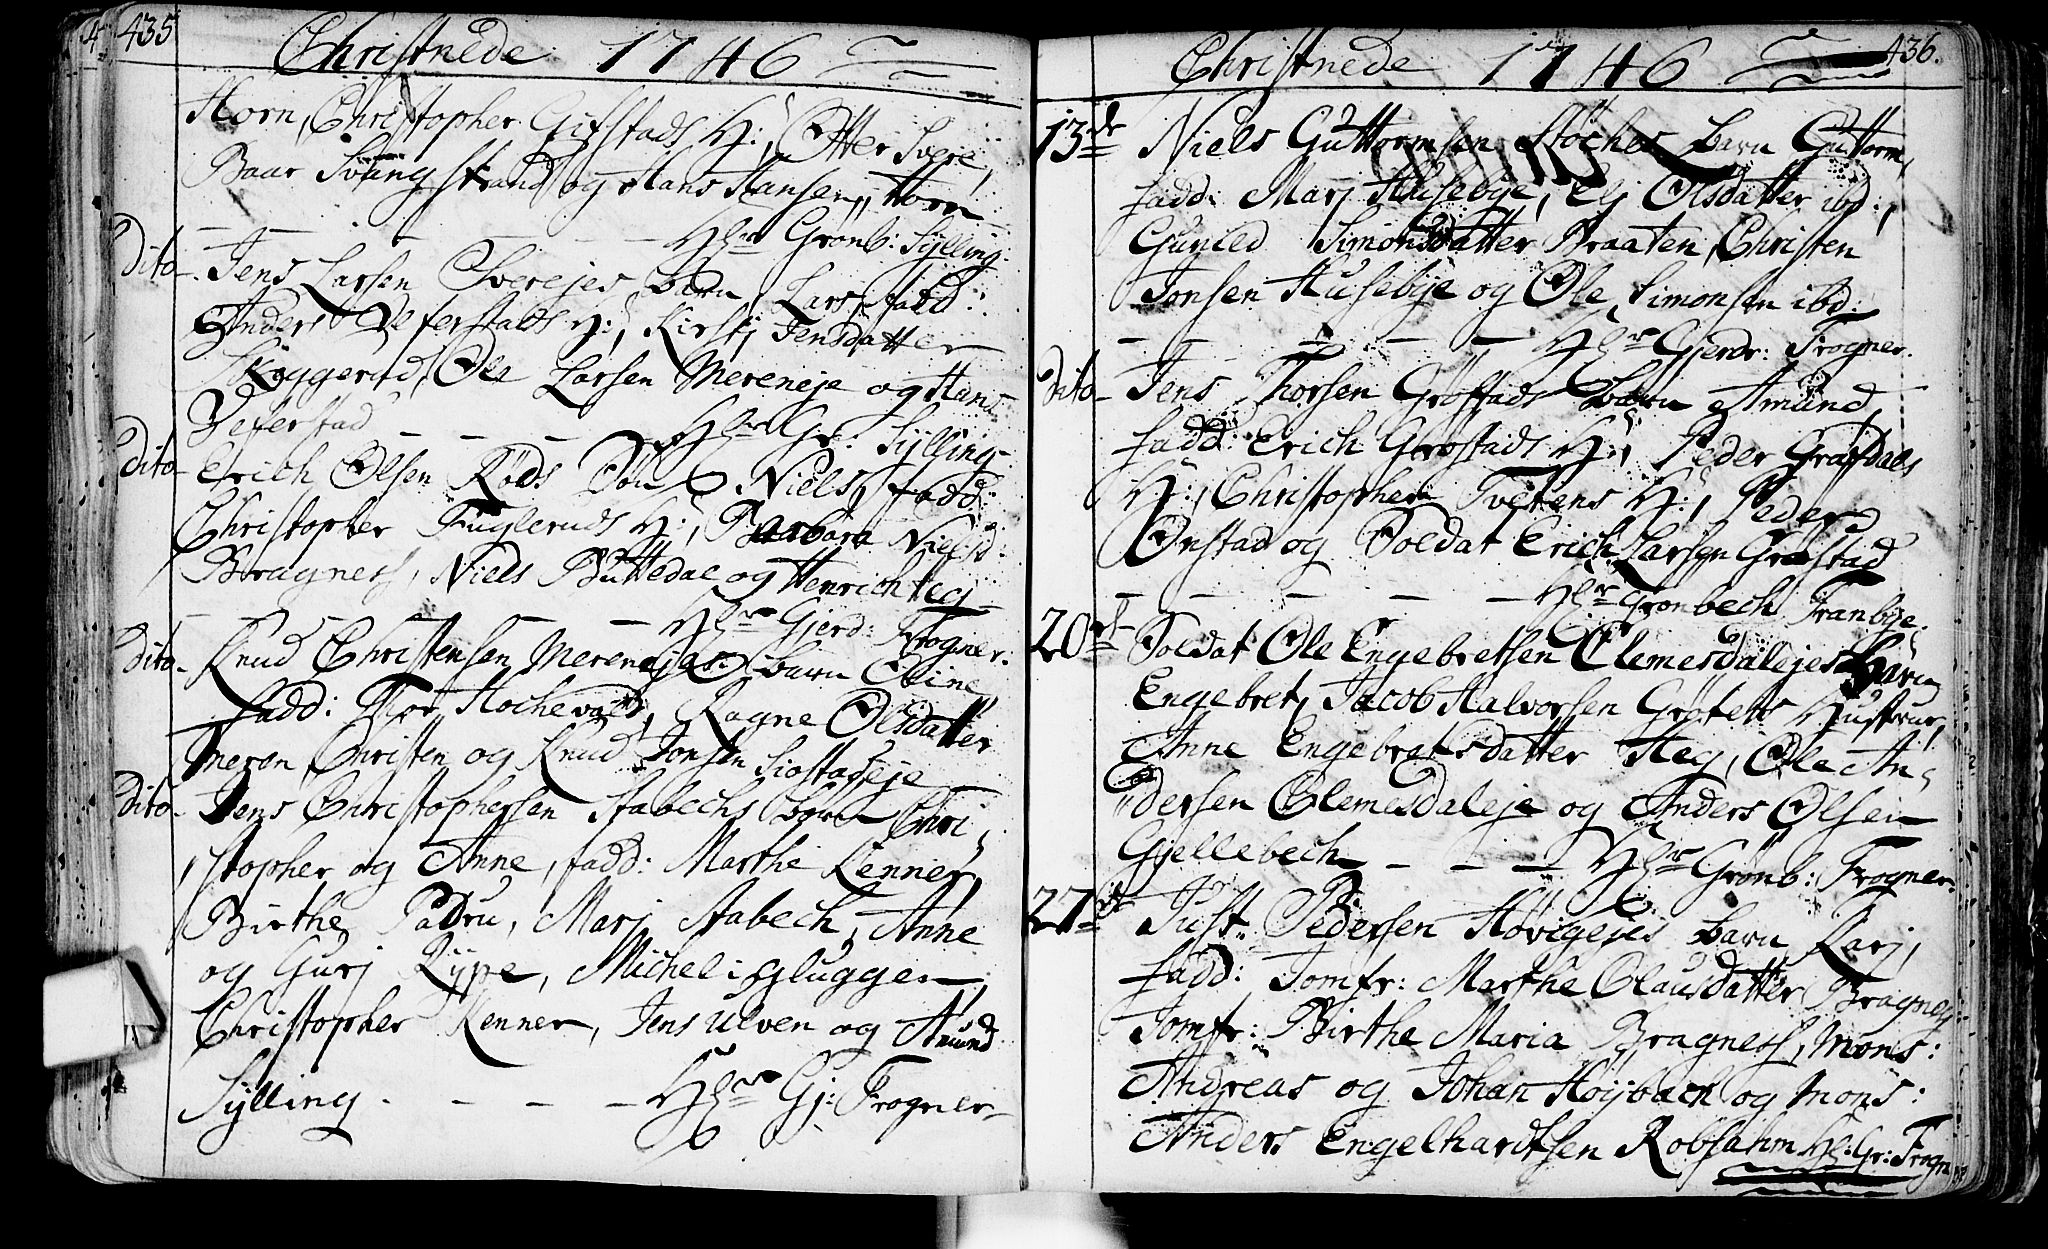 435
Christnede 1746
Horn, Christopher Gifstads H:, Otter Svere,
Baar Svangstrand og Hans Hansen, Horn
Hr Gronb: Sylling.
Dito Jens Larsen Sverejes barn Lars, fadd:
Anders Veferstads H:, Kirstj Jensdatter
Skyggerud, Ole Larsen Mereneje og Hans
Veferstad — — — Hr Gr: Sylling.
Dito Erich Olsen Röds Dön Niels, fadd:
Christopher Fuglerud H:, Barbara Nielsd:
Bragness, Niels Buttedal og Henrich Heg
Hr Gjerd: Frogner.
Dito Knud Christensen Merenejes barn Eline,
fadd: Mor Hochevold, Ragne Olsdatter
Meren, Christen og Knud Jonsen Siostadeje
Dito Jens Christophersen Stabechs børn Chri
stopher og Anne, fadd: Marthe Kenner,
Birthe Padru, Marj Stabech, Anne
og Gurj Rype, Michel Gluggen,
Christopher Kenner, Jens Ulven og Amund
Sylling. — — — Hr Gj: Frogner
436.
Christnede 1746
13de Niels Guttormsen Støches barn Guttorm,
fadd: Marj Husebye, Elj Olsdatter ibd:,
Guniled Simonsdatter Braaten, Christen
Jonsen Husebye og Ole Simonsen ibd:
Hr Gjerdr: Frogner.
Dito Jens Thorsen Grøstads barn Amund,
fadd: Erich Grøstads H:, Peder Grafdals
H:, Christopher Tvetens H:, Peder
Onstad og Soldat Erich Larsen Grøstad
Hr Gronbech Tranbye.
20de Soldat Ole Engebretsen Clemesdalejes Barn
Engebret, Jacob Halvorsen Grotets Hustrue,
Anne Engebretsdatter Heg, Ole An
dersen Clemesdaleje og Anders Olsen
Gjellebech — — — Hr Gronb: Frogner.
27de Just Pedersen Hovigejes barn Karj,
fadd: Jomfr: Marthe Clausdatter Bragness
Jomfr: Birthe Maria Bragness, Mons:
Andreas og Johan Høybach og Mons:
Anders Engelhardtsen Robsahm Hr: Gr: Frogn